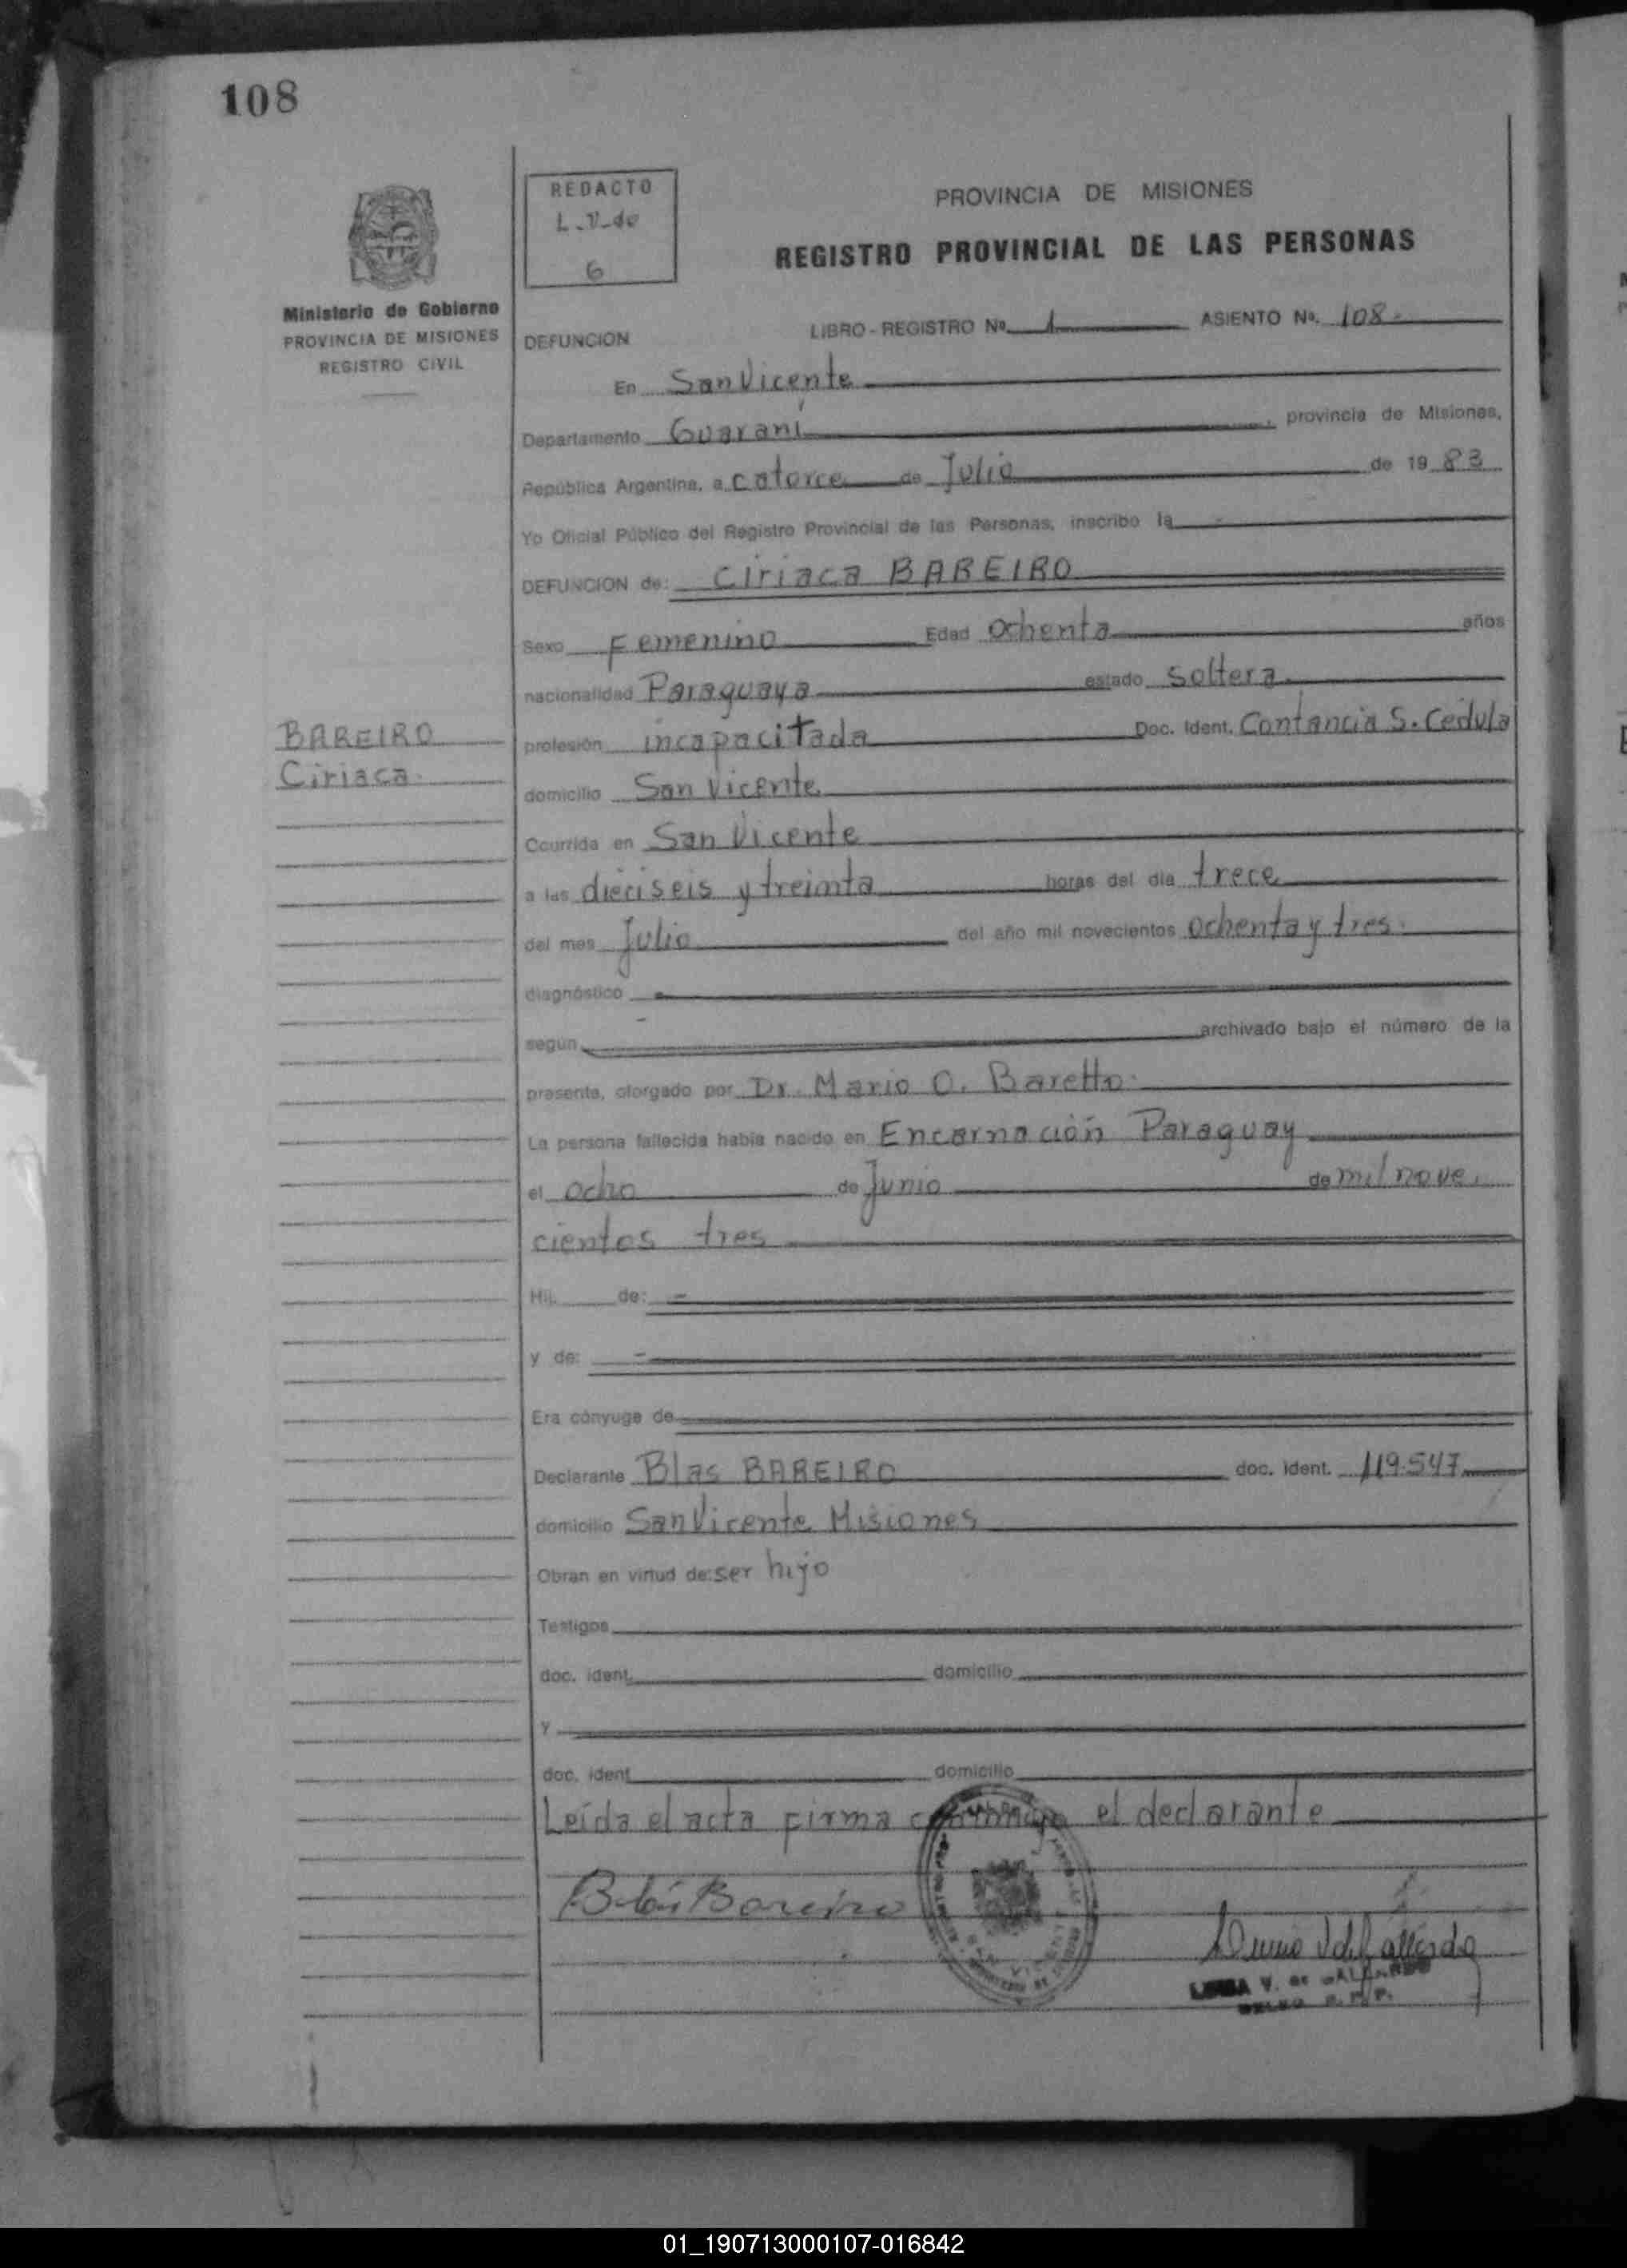 108
REDACTO
L.V.de
6
PROVINCIA DE MISIONES
REGISTRO PROVINCIAL DE LAS PERSONAS
Ministerio de Gobierno
PROVINCIA DE MISIONES
REGISTRO CIVIL
DEFUNCION LIBRO-REGISTRO No. 1 ASIENTO No. 108.
En San Vicente
Departamento Guaraní, provincia de Misiones,
República Argentina, a catorce de Julio de 1983
Yo Oficial Público del Registro Provincial de las Personas, inscribo la
DEFUNCION de: Ciriaca BAREIRO
Sexo Femenino Edad Ochenta años
nacionalidad Paraguaya estado soltera
BAREIRO
Ciriaca.
profesión incapacitada Doc. Ident. Contancia S. Cedula
domicilio San Vicente
Ocurrida en San Vicente
a las dieciseis y treinta horas del día trece
del mes Julio del año mil novecientos ochenta y tres.
diagnóstico
según archivado bajo el número de la
presente, otorgado por Dr. Mario O. Baretto.
La persona fallecida había nacido en Encarnación Paraguay
el ocho de Junio de mil nove.
cientos tres
Hij de:
y de:
Era cónyuge de
Declarante Blas BAREIRO doc. ident. 119.547
domicilio San Vicente Misiones
Obran en virtud de: ser hijo
Testigos
doc. ident. domicilio
y
doc. ident domicilio
Leída el acta firma el declarante
Blas Bareiro
V. de GALLARDO
01_190713000107-016842